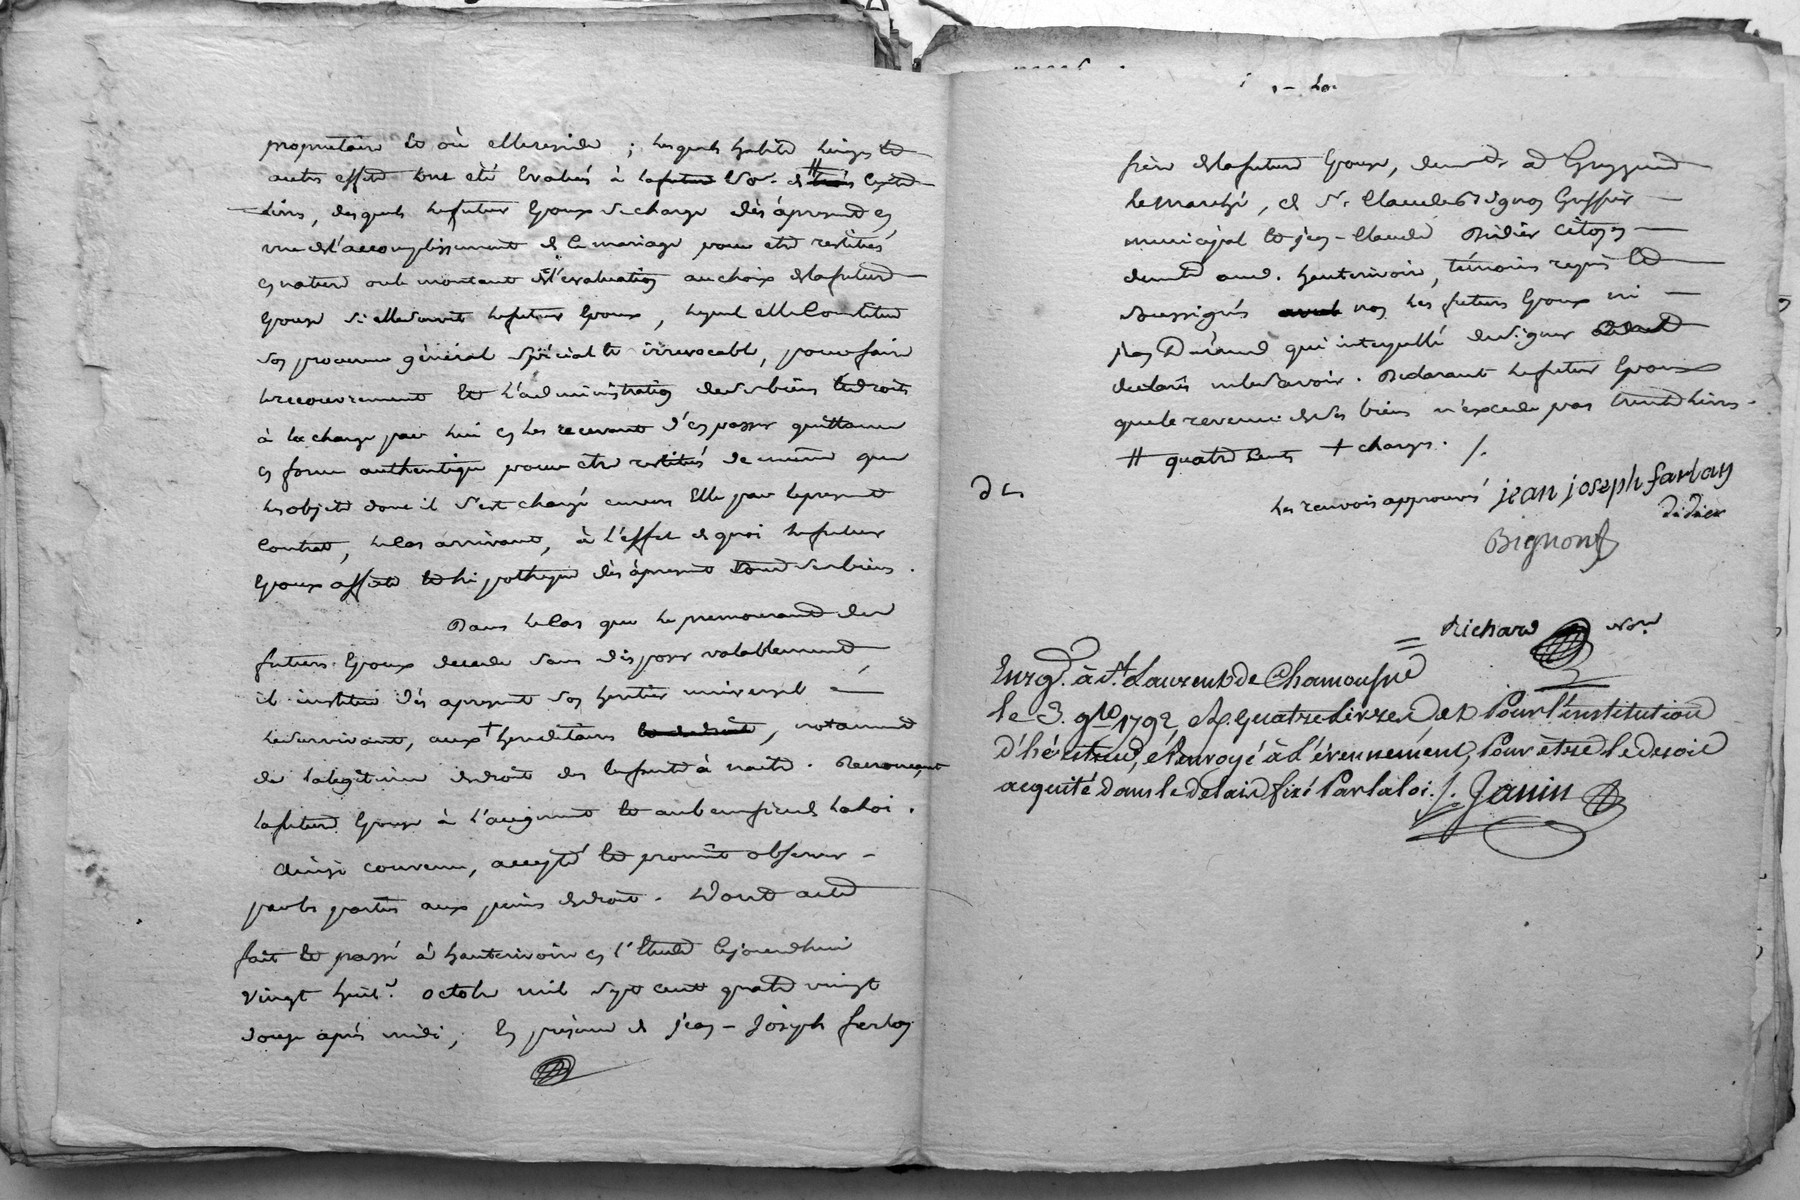 propriétaire et où elle reside ; lesquels habits linges et
autres effets ont été évalués à la somme de # cents
livres, desquels le futur Epoux se charge dès àpresent en
vue de l'accomplissement de ce mariage pour etre restitués
en nature ou le montant de l'évaluation au choix de la future
Epouse si elle survit le futur Epoux, lequel elle Constitue
son procureur général spécial et irrevocable, pour faire
le recouvrement et l'administration de ses biens et droits
à la charge par lui en les recevant d'en passer quittance
en forme authentique pour etre restitués de même que
les objets dont il s'est chargé envers Elle par le present
Contrat, le Cas arrivant, à l'effet de quoi le futur
Epoux affecte et hipotheque dès àpresent tous ses biens.
Dans le Cas que le premourant des
futurs Epoux decede sans disposer valablement,
il institue dès apresent son heritier universel
le survivant, aux + hereditaires, notamment
de la legitime de droit des Enfants à naitre. Renonçant
la future Epouse à l'augment et au benefice de la loi.
Ainsi convenu, accepté et promit observer
par les parties aux peines de droit. Dont acte
fait et passé à hauterivoire en l'Etude Cejourdhui
vingt huit octobre mil sept cent quatre vingt
douze après midi, En présence de jean-Joseph ferlay
frère de la future Epouse, demt. à Grezieu
le marché, et Sr. Claude Bignon Greffier
municipal et jean-Claude Didier Citoyen
demt aud. hauterivoire, témoins requis et
soussignés non les futurs Epoux ni
jean Durand qui interpellé de signer
declaré ne le savoir. Declarant le futur Epoux
que le revenu de ses biens n'excede pas trente livres.
# quatre Cents + charges. /.
Les renvois approuvés jean joseph farlay
didier
Bignon
Richard Nore
Enrg. à St. Laurent de Chamousset
le 3. 9bre 1792, R. quatre livres et Pour l'institution
d'héritier, renvoyé à l'évennement, Pour être le droit
acquité dans le delaid fixé Par la loi. /. Janin